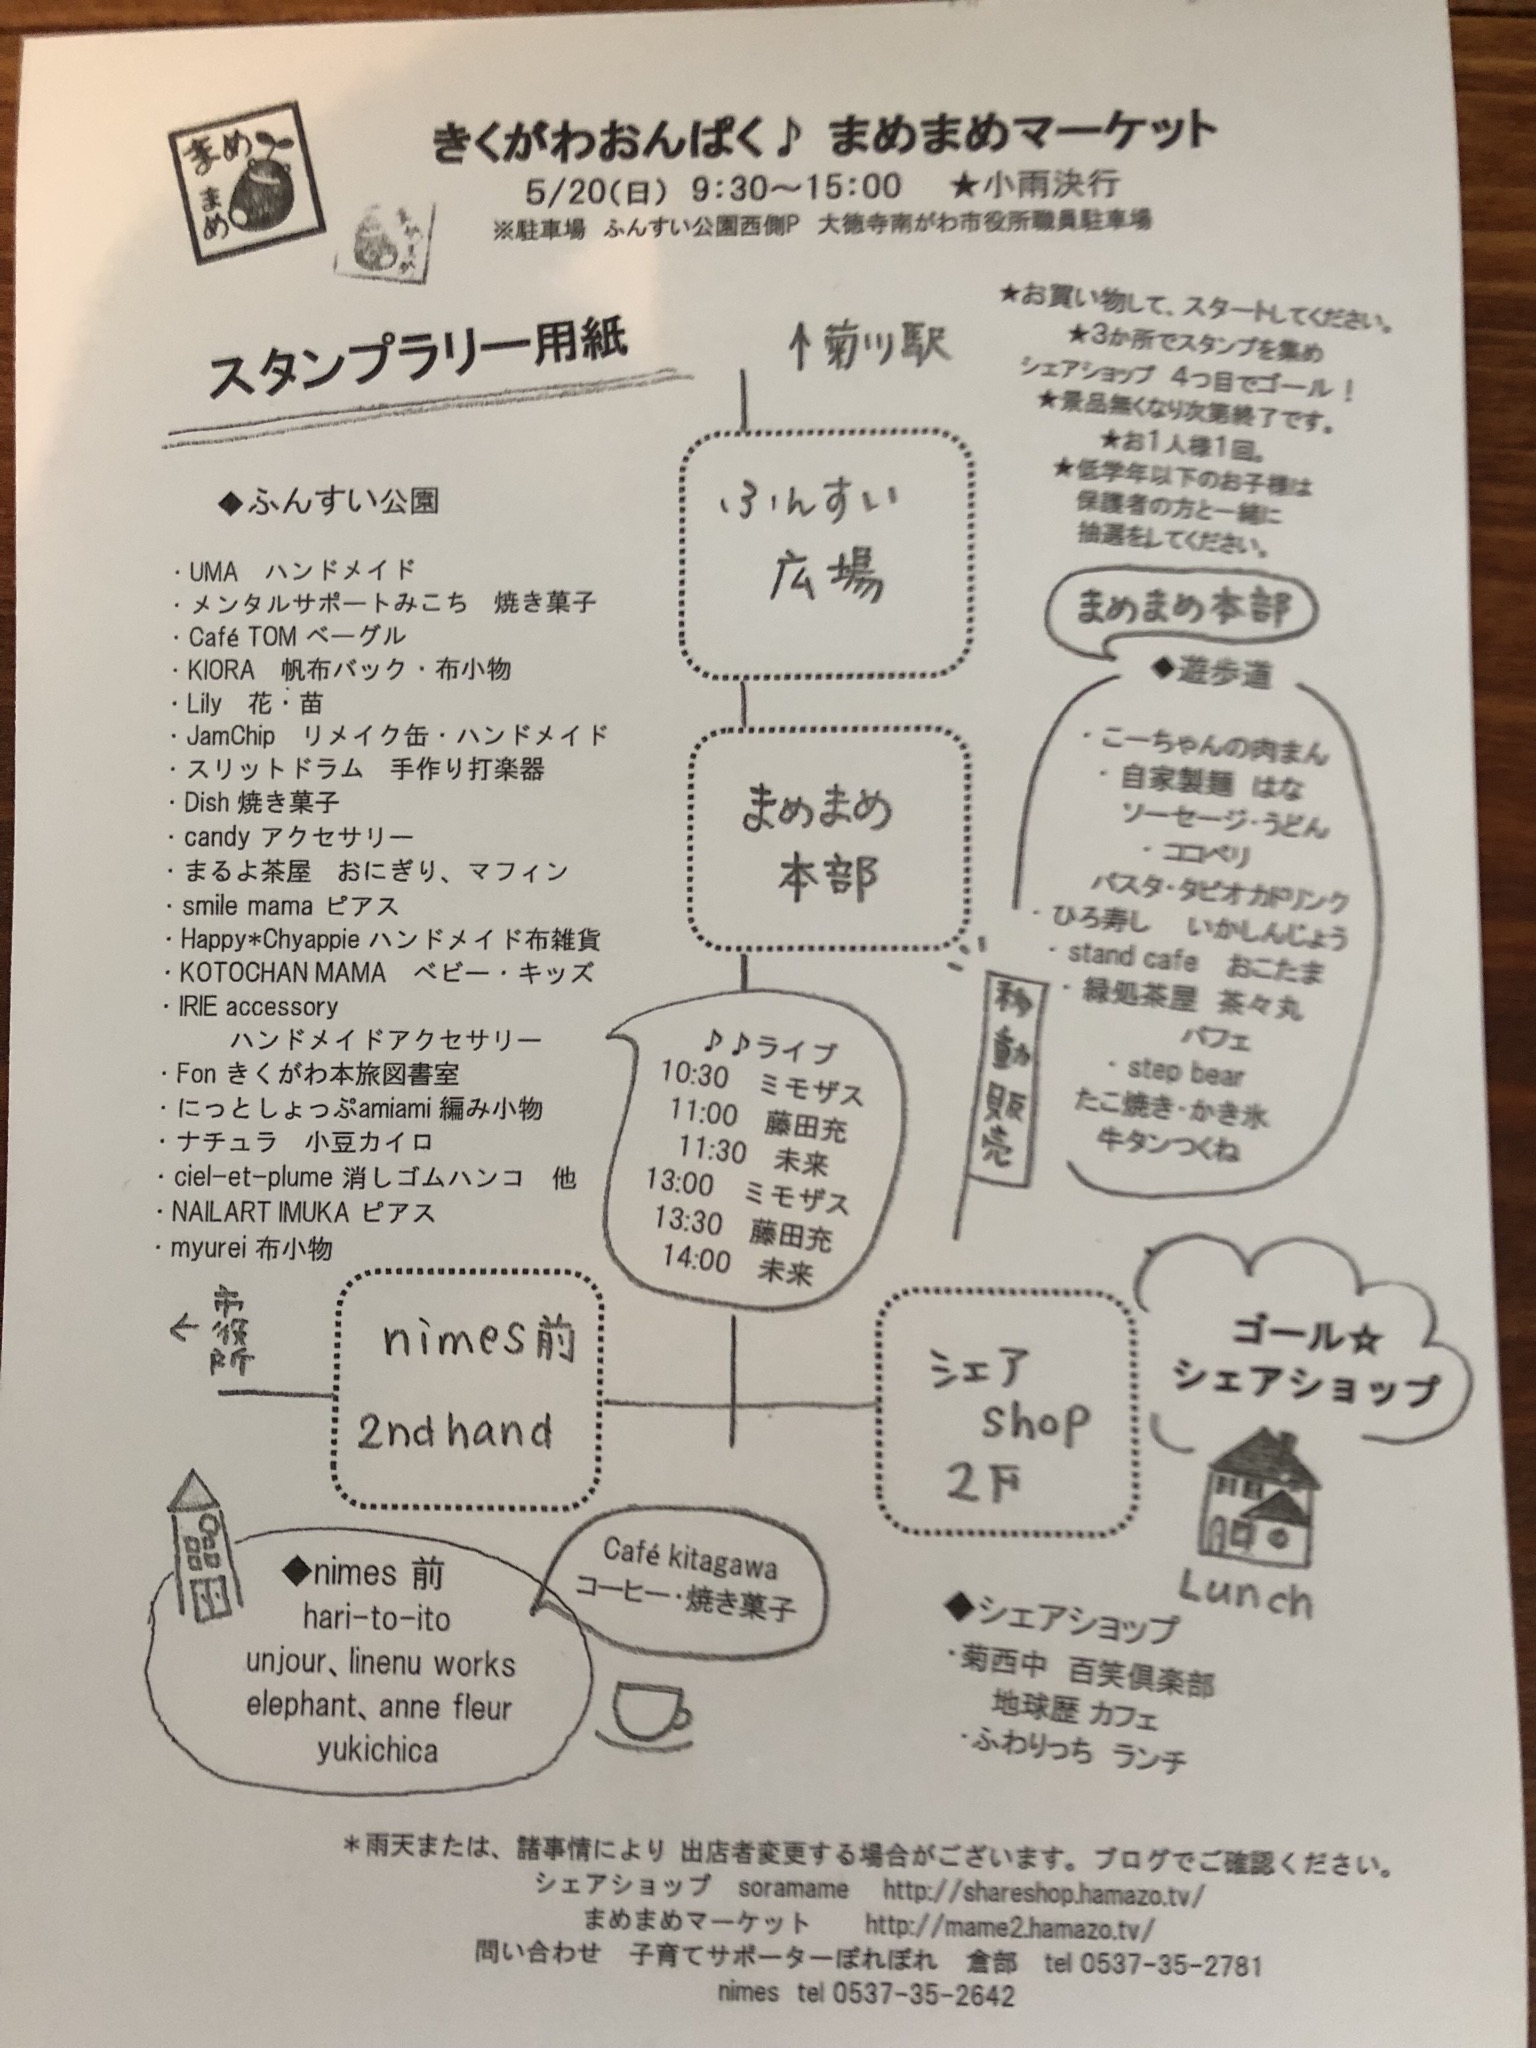 まめ
まめ
きくがわおんぱく♪ まめまめマーケット
5/20(日) 9:30～15:00 ★小雨決行
※駐車場 ふんすい公園西側P 大徳寺南がわ市役所職員駐車場
スタンプラリー用紙
↑菊川駅
★お買い物して、スタートしてください。
★3か所でスタンプを集め
シェアショップ 4つ目でゴール！
★景品無くなり次第終了です。
★お1人様1回。
★低学年以下のお子様は
保護者の方と一緒に
抽選をしてください。
◆ふんすい公園
・UMA ハンドメイド
・メンタルサポートみこち 焼き菓子
・Café TOM ベーグル
・KIORA 帆布バック・布小物
・Lily 花・苗
・JamChip リメイク缶・ハンドメイド
・スリットドラム 手作り打楽器
・Dish 焼き菓子
・candy アクセサリー
・まるよ茶屋 おにぎり、マフィン
・smile mama ピアス
・Happy*Chyappie ハンドメイド布雑貨
・KOTOCHAN MAMA ベビー・キッズ
・IRIE accessory
ハンドメイドアクセサリー
・Fon きくがわ本旅図書室
・にっとしょっぷamiami 編み小物
・ナチュラ 小豆カイロ
・ciel-et-plume 消しゴムハンコ 他
・NAILART IMUKA ピアス
・myurei 布小物
ふんすい
広場
まめまめ
本部
まめまめ本部
◆遊歩道
・こーちゃんの肉まん
・自家製麺 はな
ソーセージ・うどん
・ココペリ
パスタ・タピオカドリンク
・ひろ寿し いかしんじょう
・stand cafe おこたま
・緑処茶屋 茶々丸
パフェ
・step bear
たこ焼き・かき氷
牛タンつくね
移動販売
♪♪ライブ
10:30 ミモザス
11:00 藤田充
11:30 未来
13:00 ミモザス
13:30 藤田充
14:00 未来
←市役所
nimes前
2nd hand
シェア
shop
2F
ゴール☆
シェアショップ
Lunch
◆nimes 前
hari-to-ito
unjour、linenu works
elephant、anne fleur
yukichica
Café kitagawa
コーヒー・焼き菓子
◆シェアショップ
・菊西中 百笑倶楽部
地球歴 カフェ
・ふわりっち ランチ
＊雨天または、諸事情により 出店者変更する場合がございます。ブログでご確認ください。
シェアショップ soramame http://shareshop.hamazo.tv/
まめまめマーケット http://mame2.hamazo.tv/
問い合わせ 子育てサポーターぽれぽれ 倉部 tel 0537-35-2781
nimes tel 0537-35-2642